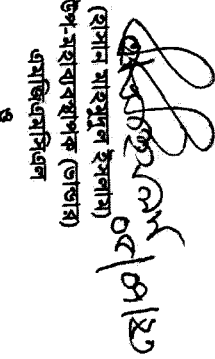 (হাসান মাহমুদুল ইসলাম)
উপ-মহাব্যবস্থাপক (ভান্ডার)
এমজিএমসিএল
ও